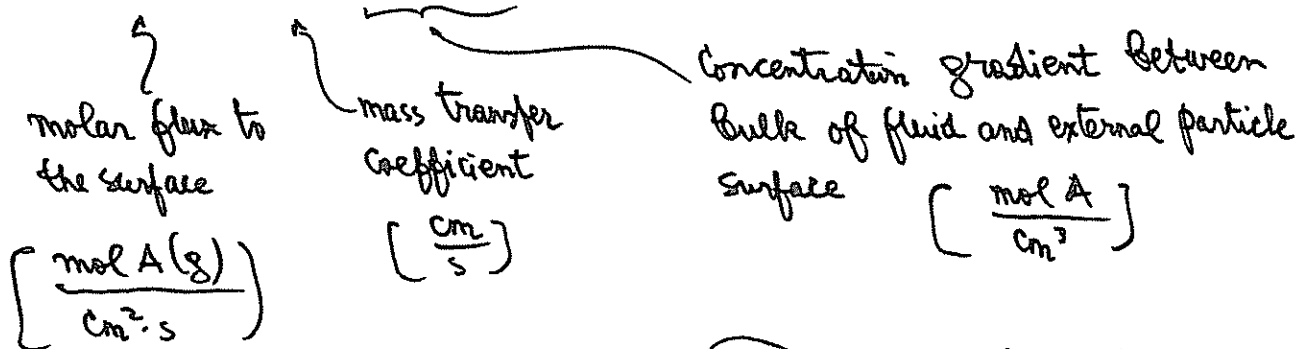 molar flux to
the surface
[ mol A(g) / cm². s ]
mass transfer
coefficient
[ cm / s ]
Concentration gradient between
bulk of fluid and external particle
surface [ mol A / cm³ ]